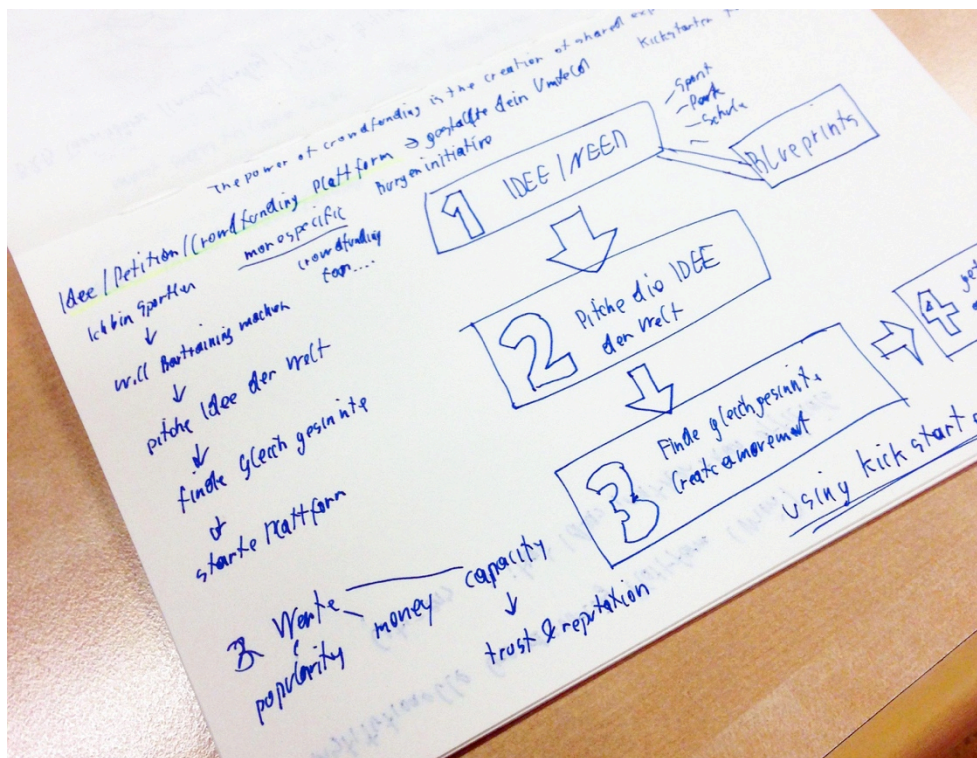 The power of crowdfunding is the creation of shared
Kickstarter
Idee / Petition / Crowdfunding Plattform → gestallte dein Umfeld
more specific
Burgeninitiative
crowdfunding
Ich bin Sportler
↓
will Bartraining machen
↓
pitche Idee der Welt
↓
finde gleich gesinnte
↓
starte Plattform
1 IDEE / NEED
Sport
Park
Schule
Blueprints
2 Pitche die IDEE
der Welt
3 Finde gleichgesinnte
Create a movement
4
using kickstart
3 Werte
popularity
money
capacity
↓
trust & reputation